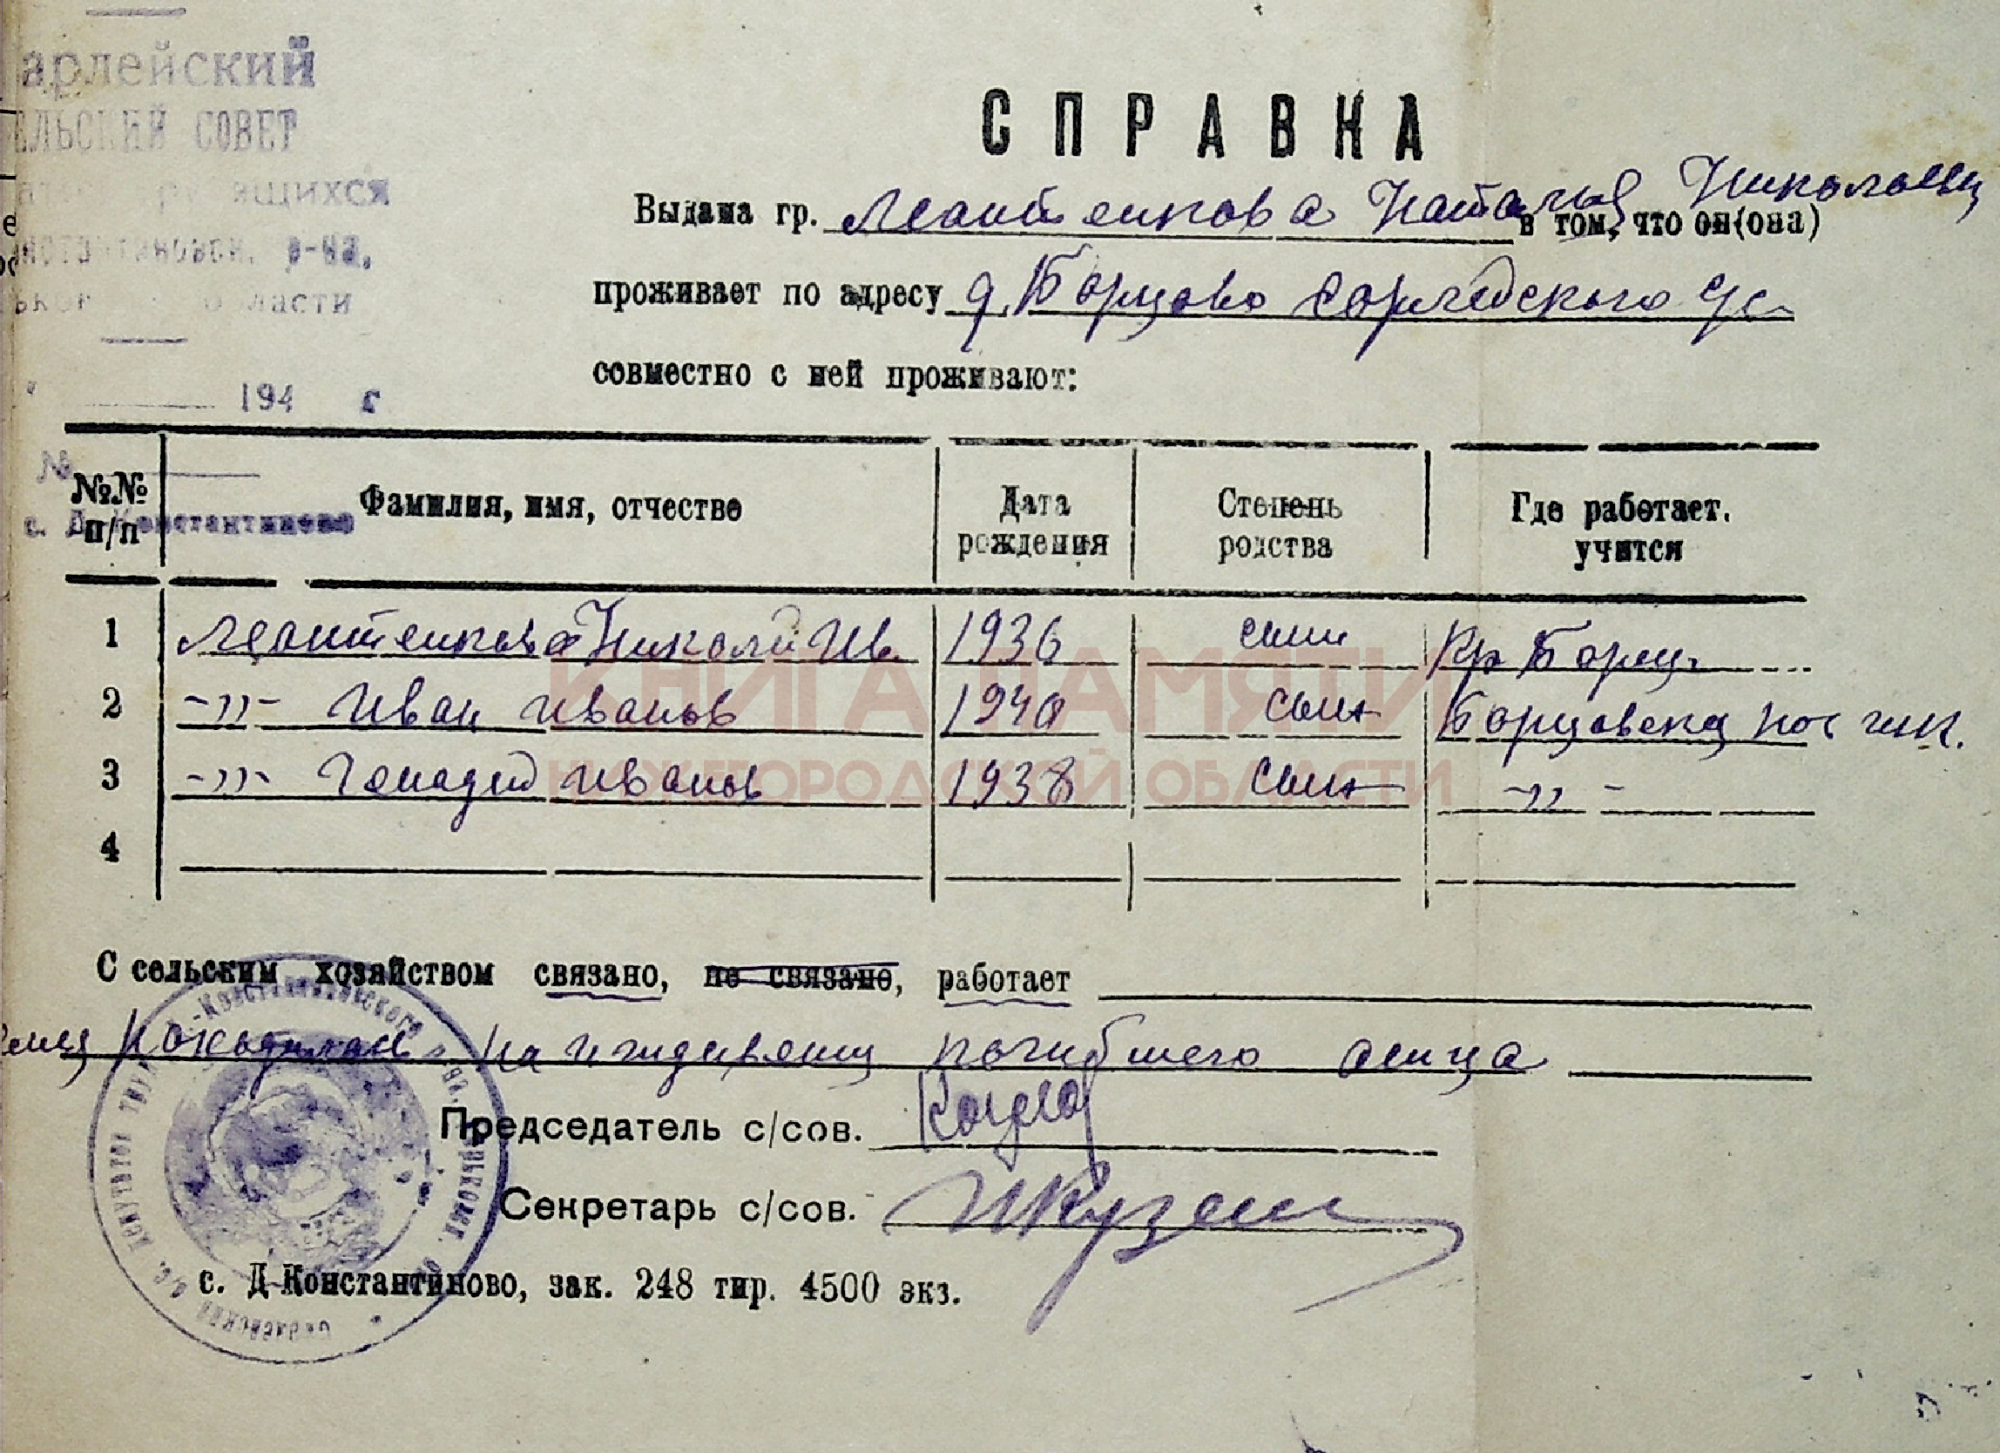 арлейский
ЕЛЬСКИЙ СОВЕТ
ащихся
р-на,
ласти
194 г
№
с. Д Константиново
СПРАВКА
Выдана гр. Леонтенкова Наталья Николаевн в том, что он(она)
проживает по адресу д. Борцово Сарлейского с/с
совместно с ней проживают:
№№ п/п Фамилия, имя, отчество Дата рождения Степень родства Где работает. учится
1 Леонтенков Николай Ив. 1936 сын Кр Борц.
2 -"- Иван Иванов 1940 сын Борцовска нос
3 -"- Генадий Иванов 1938 сын -"-
4
С сельским хозяйством связано, не связано, работает
на иждивении погибшего отца
Председатель с/сов.
Секретарь с/сов. Кузен
с. Д-Константиново, зак. 248 тир. 4500 экз.
КНИГА ПАМЯТИ
НИЖЕГОРОДСКОЙ ОБЛАСТИ